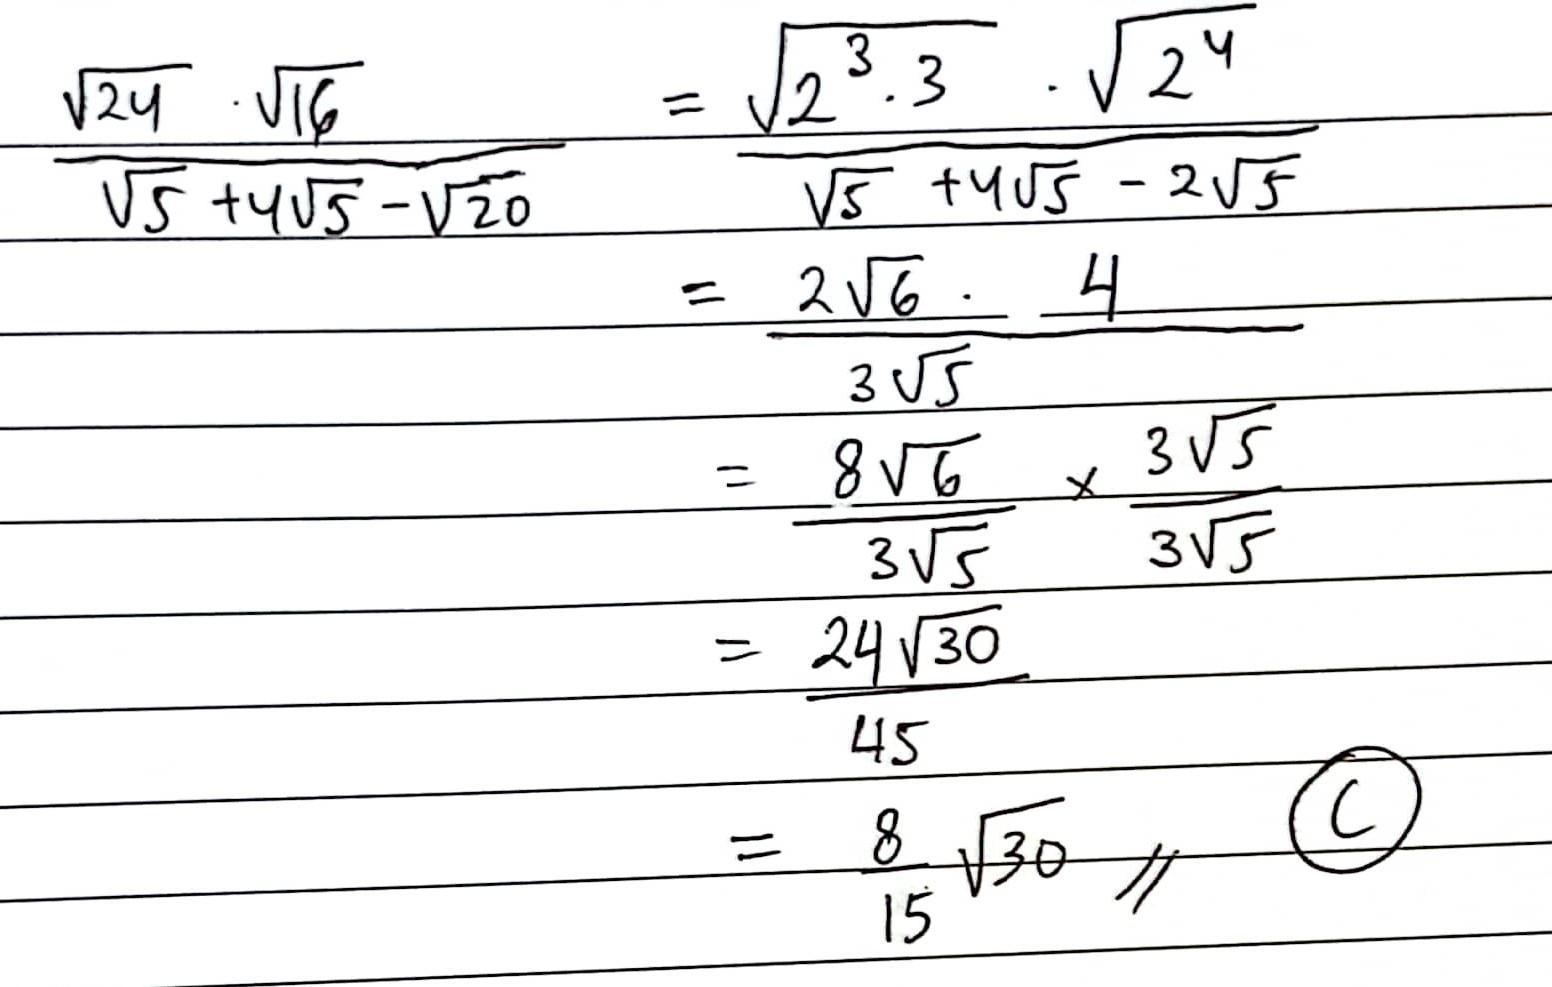 √24 · √16 / √5 + 4√5 - √20 = √2³·3 · √2⁴ / √5 + 4√5 - 2√5
= 2√6 · 4 / 3√5
= 8√6 / 3√5 × 3√5 / 3√5
= 24√30 / 45
= 8/15 √30 // C